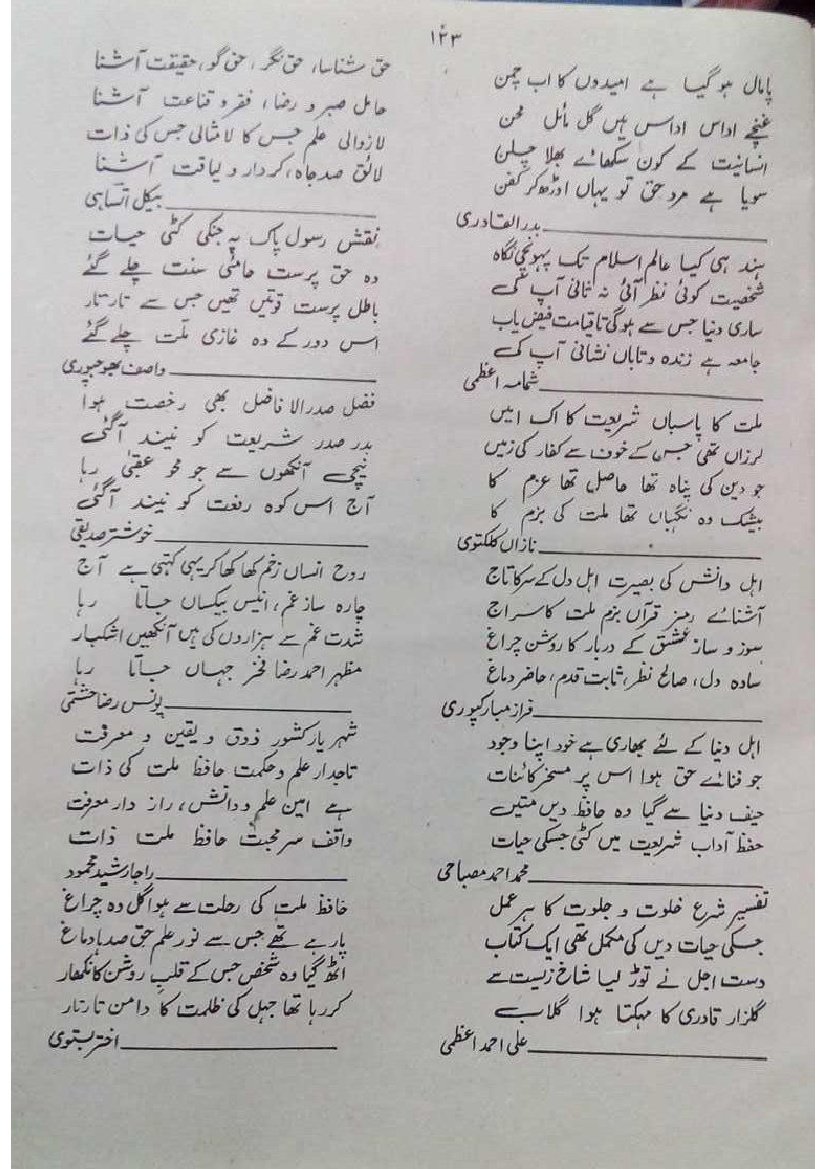 ۱۲۳
پامال ہو گیا ہے امیدوں کا اب چمن
غنچے اداس اداس ہیں گل مائل محن
انسانیت کے کون سکھائے بھلا چلن
سویا ہے مرد حق تو یہاں اوڑھ کر کفن
بدر القادری
ہند ہی کیا عالم اسلام تک پہونچی نگاہ
شخصیت کوئی نظر آئی نہ ثانی آپ کی
ساری دنیا جس سے ہوگی تا قیامت فیض یاب
جامعہ ہے زندہ و تاباں نشانی آپ کی
شمامہ اعظمی
ملت کا پاسباں شریعت کا اک امیں
لرزاں تھی جس کے خوف سے کفار کی زمیں
جو دین کی پناہ تھا حاصل تھا عزم کا
بیشک وہ نگہباں تھا ملت کی بزم کا
نازاں کلکتوی
اہل دانش کی بصیرت اہل دل کے سر کا تاج
آشنائے رمز قرآں بزم ملت کا سراج
سوز و ساز عشق کے دربار کا روشن چراغ
سادہ دل، صالح نظر، ثابت قدم، حاضر دماغ
فراز مبارکپوری
اہل دنیا کے لئے بھاری ہے خود اپنا وجود
جو فنائے حق ہوا اس پر مسخر کائنات
حیف دنیا سے گیا وہ حافظ دیں متیں
حفظ آداب شریعت میں کٹی جسکی حیات
محمد احمد مصباحی
تفسیر شرع خلوت و جلوت کا ہر عمل
جسکی حیات دیں کی مکمل تھی ایک کتاب
دست اجل نے توڑ لیا شاخ زیست سے
گلزار قادری کا مہکتا ہوا گلاب
علی احمد اعظمی
حق شناسا، حق نگر، حق گو، حقیقت آشنا
حامل صبر و رضا، فقر و قناعت آشنا
لازوالی علم جس کا لامثالی جس کی ذات
لائق صد جاہ، کردار و لیاقت آشنا
بیکل اتساہی
نقش رسول پاک پہ جنکی کٹی حیات
وہ حق پرست حامئی سنت چلے گئے
باطل پرست قوتیں تھیں جس سے تار تار
اس دور کے وہ غازی ملت چلے گئے
واصف بھوجپوری
فضل صدر الافاضل بھی رخصت ہوا
بدر صدر شریعت کو نیند آگئی
نیچی آنکھوں سے جو محو عقبیٰ رہا
آج اس کوہ رفعت کو نیند آگئی
خوشتر صدیقی
روح انساں زخم کھا کھا کر یہی کہتی ہے آج
چارہ ساز غم، انیس بیکساں جاتا رہا
شدت غم سے ہزاروں کی ہیں آنکھیں اشکبار
مظہر احمد رضا فخر جہاں جاتا رہا
یونس رضا حشمتی
شہر یار کشور ذوق و یقین و معرفت
تاجدار علم و حکمت حافظ ملت کی ذات
ہے امین علم و دانش، راز دار معرفت
واقف سر محبت حافظ ملت ذات
راجا رشید محمود
حافظ ملت کی رحلت سے ہوا گل وہ چراغ
پا رہے تھے جس سے نور علم حق صدہا دماغ
اٹھ گیا وہ شخص جس کے قلب روشن کا نکھار
کر رہا تھا جہل کی ظلمت کا دامن تار تار
اختر بستوی